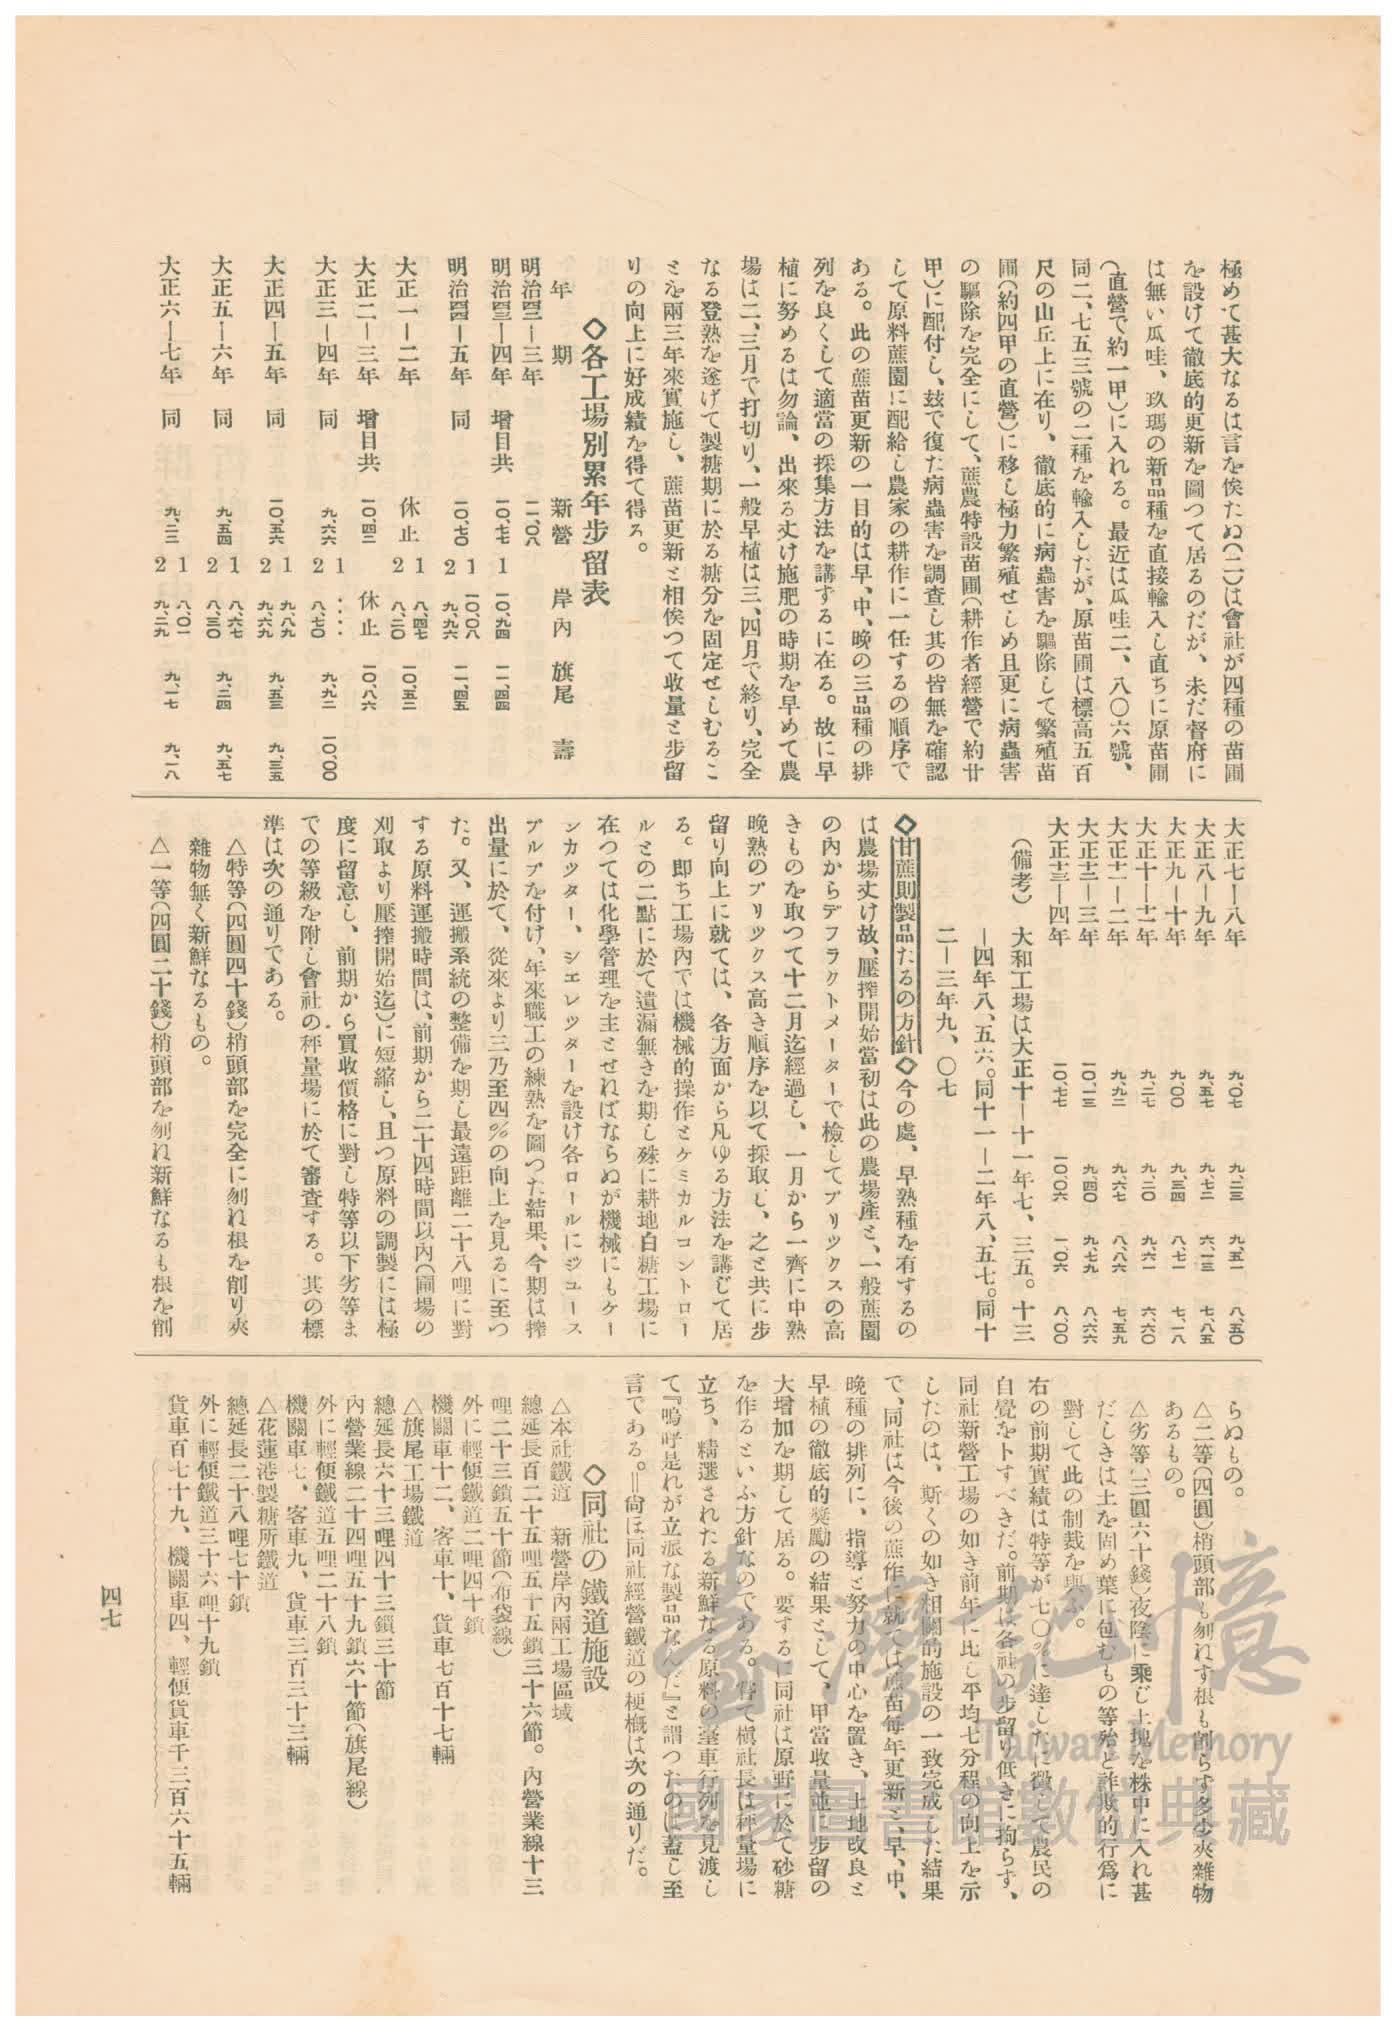 極めて甚大なるは言を俟たぬ(二)は會社が四種の苗圃
を設けて徹底的更新を圖つて居るのだが、未だ督府に
は無い瓜哇、玖瑪の新品種を直接輸入し直ちに原苗圃
(直營で約一甲)に入れる。最近は瓜哇二、八〇六號、
同二、七五三號の二種を輸入したが、原苗圃は標高五百
尺の山丘上に在り、徹底的に病蟲害を驅除して繁殖苗
圃(約四甲の直營)に移し極力繁殖せしめ且更に病蟲害
の驅除を完全にして、蔗農特設苗圃(耕作者經營で約廿
甲)に配付し、玆で復た病蟲害を調査し其の皆無を確認
して原料蔗園に配給し農家の耕作に一任するの順序で
ある。此の蔗苗更新の一目的は早、中、晩の三品種の排
列を良くして適當の採集方法を講ずるに在る。故に早
植に努めるは勿論、出來る丈け施肥の時期を早めて農
場は二、三月で打切り、一般早植は三、四月で終り、完全
なる登熟を遂げて製糖期に於る糖分を固定せしむるこ
とを兩三年來實施し、蔗苗更新と相俟つて收量と步留
りの向上に好成績を得て得ろ。
◇各工場別累年步留表
年期 新營 岸內 旗尾 壽
明治四二—三年 一一、〇八
明治四三—四年 增目共 一〇、七七 1 一〇、九四 一一、四四
明治四四—五年 同 一〇、七〇 1 一〇、〇八 2 九、九六 一一、四五
大正一—二年 休止 1 八、四七 2 八、二〇 一〇、五二
大正二—三年 增目共 一〇、四二 休止 一〇、八六
大正三—四年 同 九、六六 1 … 2 八、七〇 九、九二 一〇、〇〇
大正四—五年 同 一〇、五六 1 九、八九 2 九、六九 九、五三 九、三五
大正五—六年 同 九、五四 1 八、六七 2 八、三〇 九、二四 九、五七
大正六—七年 同 九、二三 1 八、〇一 2 九、二九 九、一七 九、一八
大正七—八年 九、〇七 九、二三 九、五一 八、五〇
大正八—九年 九、五七 九、七二 六、一三 七、八五
大正九—十年 九、〇〇 九、三四 八、七一 七、一八
大正十—十一年 九、二七 九、二〇 九、六一 六、六〇
大正十一—二年 九、九二 九、六七 八、八六 七、五九
大正十二—三年 一〇、一三 九、四〇 九、七九 八、六六
大正十三—四年 一〇、七七 一〇、〇六 一〇、六 八、〇〇
(備考) 大和工場は大正十—十一年七、三五。十三
—四年八、五六。同十一—二年八、五七。同十
二—三年九、〇七
◇甘蔗則製品たるの方針◇今の處、早熟種を有するの
は農場丈け故、壓搾開始當初は此の農場產と、一般蔗園
の內からデフラクトメーターで檢してブリツクスの高
きものを取つて十二月迄經過し、一月から一齊に中熟
晩熟のブリツクス高き順序を以て採取し、之と共に步
留り向上に就ては、各方面から凡ゆる方法を講じて居
る。卽ち工場內では機械的操作とケミカルコントロー
ルとの二點に於て遺漏無きを期し殊に耕地白糖工場に
在つては化學管理を主とせねばならぬが機械にもケー
ンカツター、シエレツターを設け各ロールにジユース
プルプを付け、年來職工の練熟を圖つた結果、今期は搾
出量に於て、從來より三乃至四％の向上を見るに至つ
た。又、運搬系統の整備を期し最遠距離二十八哩に對
する原料運搬時間は、前期から二十四時間以內(圃場の
刈取より壓搾開始迄)に短縮し、且つ原料の調製には極
度に留意し、前期から買收價格に對し特等以下劣等ま
での等級を附し會社の秤量場に於て審査する。其の標
準は次の通りである。
△特等(四圓四十錢)梢頭部を完全に刎ね根を削り夾
雜物無く新鮮なるもの。
△一等(四圓二十錢)梢頭部を刎ね新鮮なるも根を削
らぬもの。
△二等(四圓)梢頭部も刎ねす根も削らず多少夾雜物
あるもの。
△劣等(三圓六十錢)夜陰に乘じ土塊を株中に入れ甚
だしきは土を固め葉に包むもの等殆と詐欺的行爲に
對して此の制裁を與ふ。
右の前期實績は特等が七〇％に達したに徵して農民の
自覺をトすべきだ。前期は各社の步留り低きに拘らす、
同社新營工場の如き前年に比し平均七分程の向上を示
したのは、斯くの如き相關的施設の一致完成した結果
で、同社は今後の蔗作に就ては蔗苗每年更新と、早、中、
晩種の排列に、指導と努力の中心を置き、土地改良と
早植の徹底的奬勵の結果として、甲當收量並に步留の
大增加を期して居る。要するに同社は原野に於て砂糖
を作るといふ方針なのである。嘗て槇社長は秤量場に
立ち、精選されたる新鮮なる原料の臺車行列を見渡し
て『嗚呼是れが立派な製品なんだ』と謂つたのは蓋し至
言である。‖尙ほ同社經營鐵道の梗槪は次の通りだ。
◇同社の鐵道施設
△本社鐵道 新營岸內兩工場區域
總延長百二十五哩五十五鎖三十六節。內營業線十三
哩二十三鎖五十節(布袋線)
外に輕便鐵道二哩四十鎖
機關車十二、客車十、貨車七百十七輛
△旗尾工場鐵道
總延長六十三哩四十三鎖三十節
內營業線二十四哩五十九鎖六十節(旗尾線)
外に輕便鐵道五哩二十八鎖
機關車七、客車九、貨車三百三十三輛
△花蓮港製糖所鐵道
總延長二十八哩七十鎖
外に輕便鐵道三十六哩十九鎖
貨車百七十九、機關車四、輕便貨車千三百六十五輛
四七
臺灣記憶
Taiwan Memory
國家圖書館數位典藏